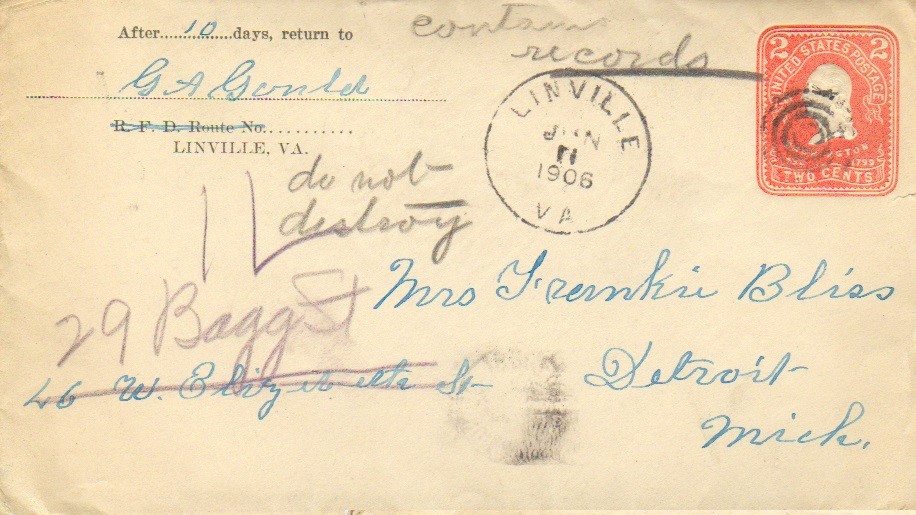 After 10 days, return to
G A Gould
R. F. D. Route No.
LINVILLE, VA.
contains
records
do not
destroy
LINVILLE
1906
VA
2 2
UNITED STATES POSTAGE
1799
TWO CENTS
Mrs Frankie Bliss
29 Bagg St
46 W. Elizabeth St
Detroit
Mich.